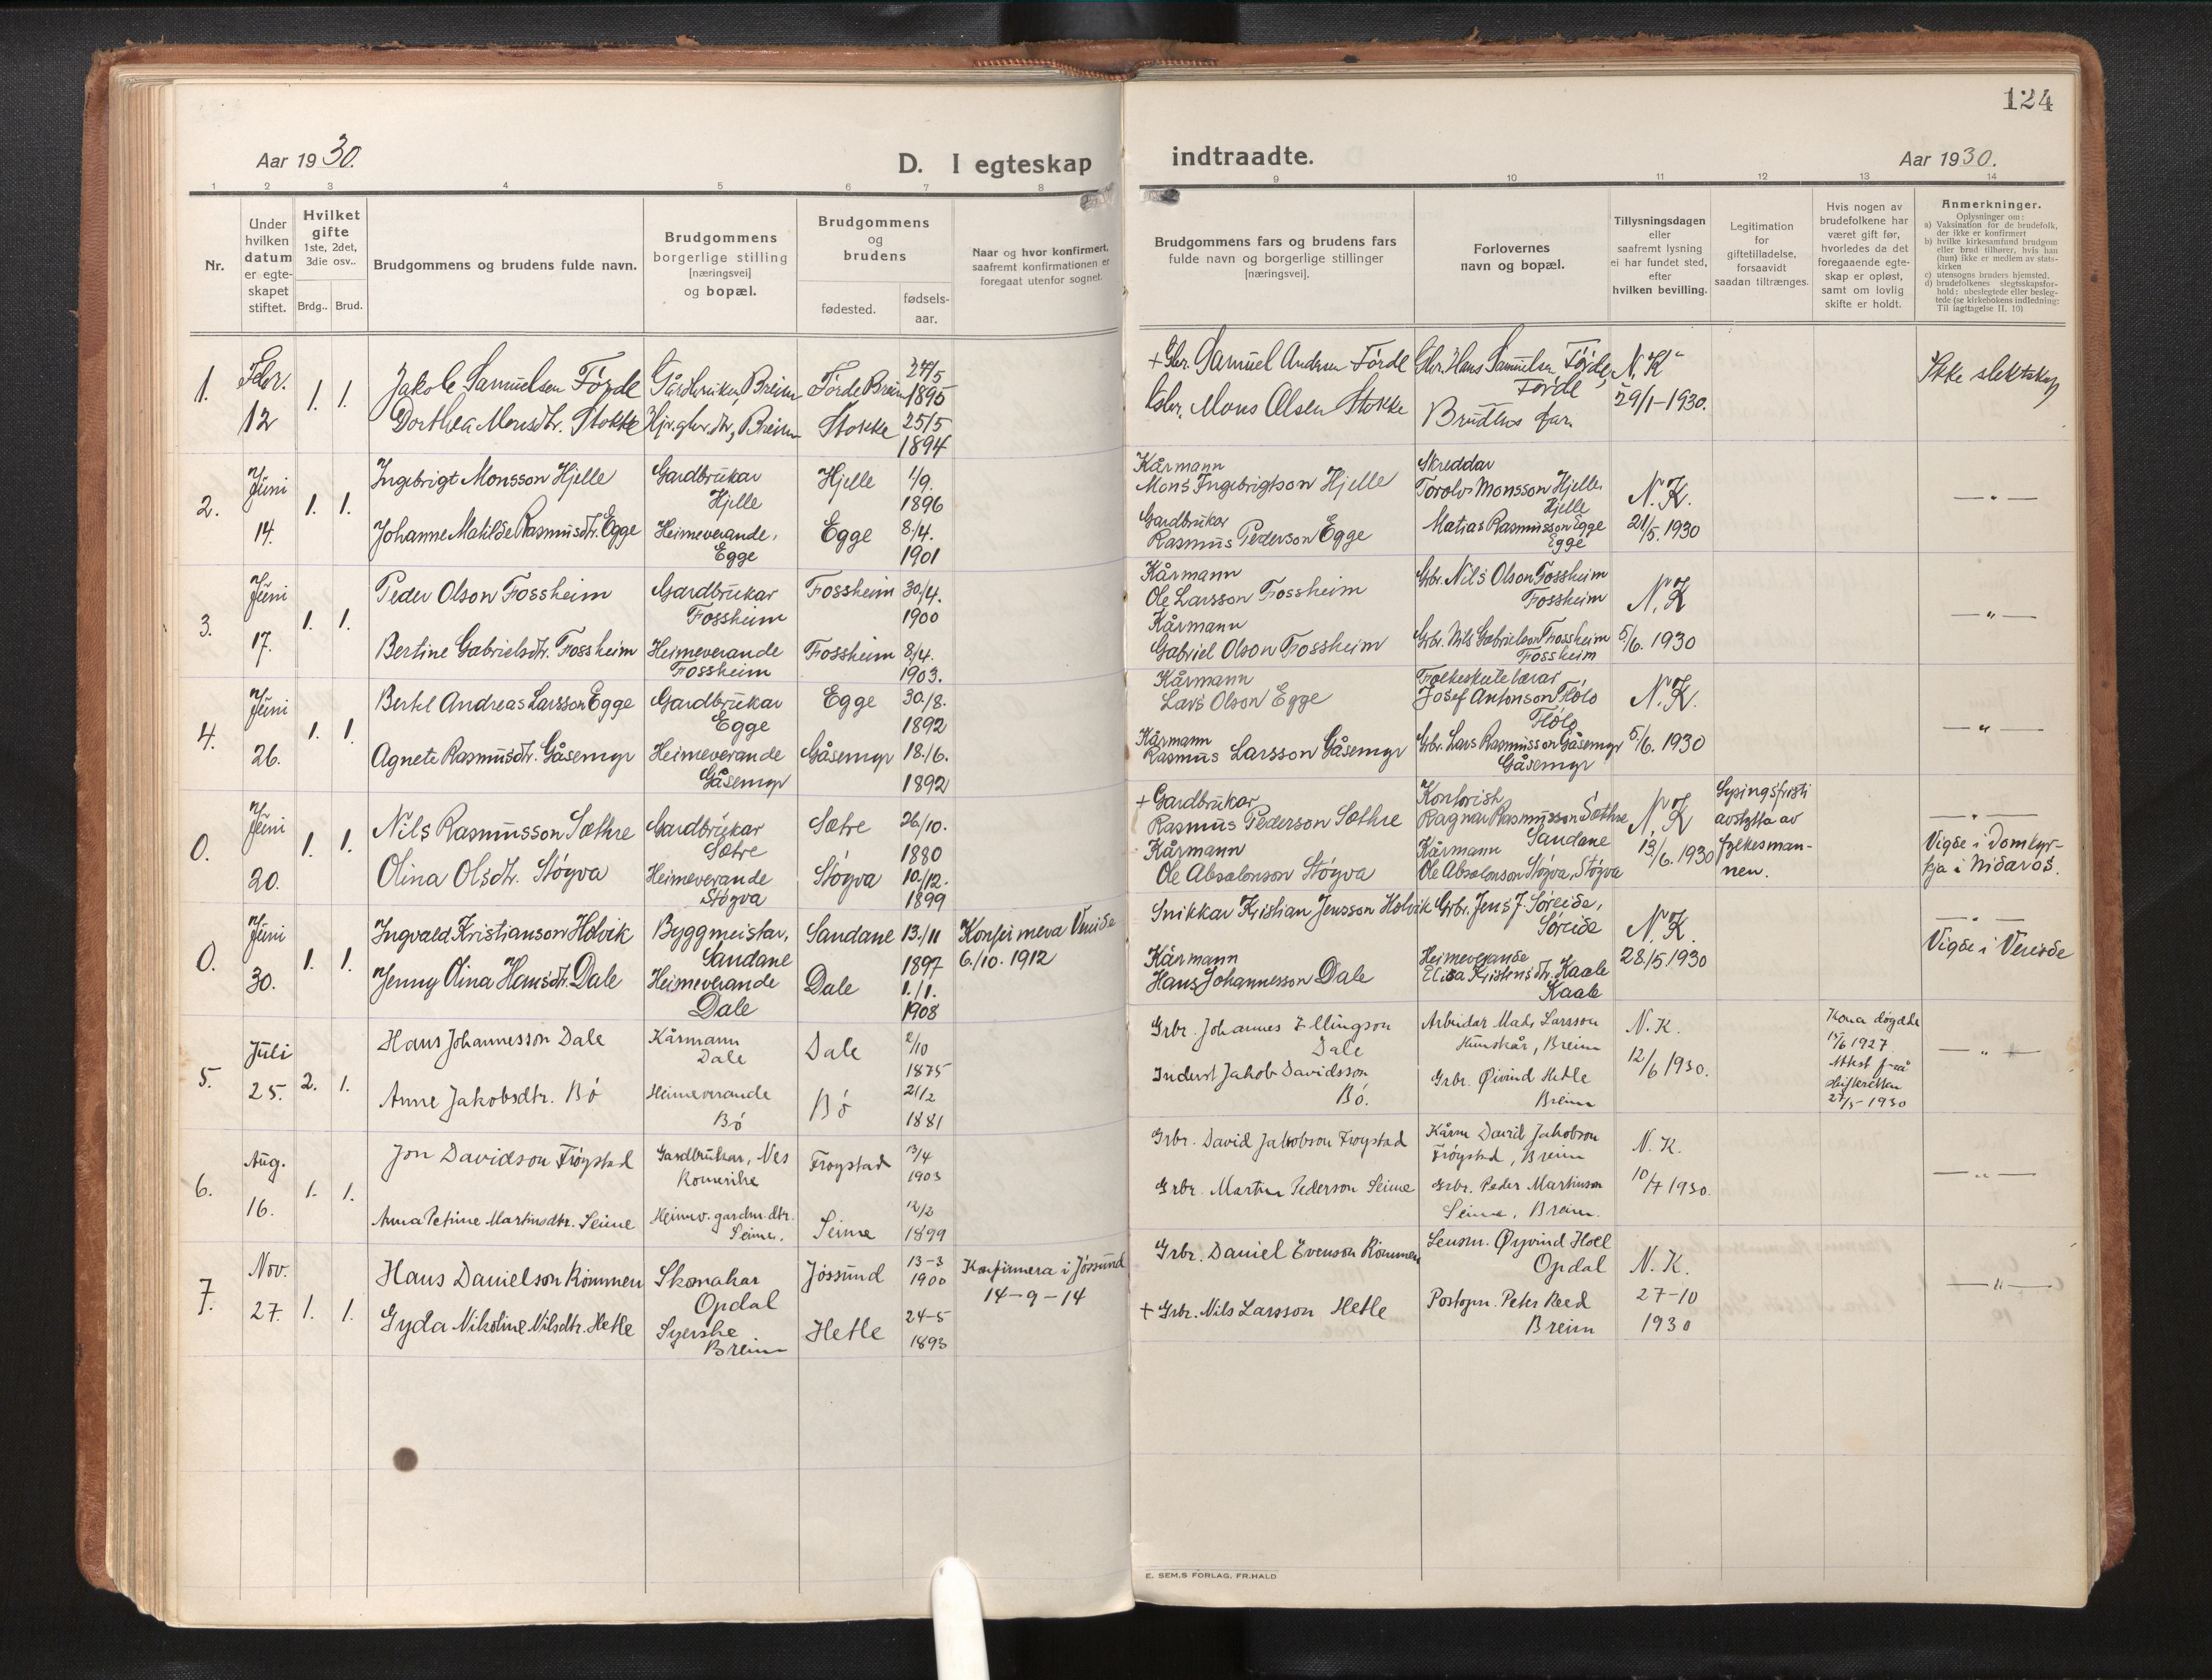 124
Aar 1930.
D. I egteskap indtraadte.
Aar 1930.
1 2 3 4 5 6 7 8 9 10 11 12 13 14
Nr.
Under
hvilken
datum
er egte-
skapet
stiftet.
Hvilket
gifte
1ste, 2det,
3die osv..
Brdg.. Brud.
Brudgommens og brudens fulde navn.
Brudgommens
borgerlige stilling
[næringsvei]
og bopæl.
Brudgommens
og
brudens
fødested.
fødsels-
aar.
Naar og hvor konfirmert,
saafremt konfirmationen er
foregaat utenfor sognet.
Brudgommens fars og brudens fars
fulde navn og borgerlige stillinger
[næringsvei].
Forlovernes
navn og bopæl.
Tillysningsdagen
eller
saafremt lysning
ei har fundet sted,
efter
hvilken bevilling.
Legitimation
for
giftetilladelse,
forsaavidt
saadan tiltrænges.
Hvis nogen av
brudefolkene har
været gift før,
hvorledes da det
foregaaende egte-
skap er opløst,
samt om lovlig
skifte er holdt.
Anmerkninger.
Oplysninger om:
a) Vaksination for de brudefolk,
der ikke er konfirmert
b) hvilke kirkesamfund brudgom
eller brud tilhører, hvis han
(hun) ikke er medlem av stats-
kirken
c) utensogns bruders hjemsted.
d) brudefolkenes slegtsskapsfor-
hold: ubeslegtede eller besleg-
tede (se kirkebokens indledning:
Til iagttagelse II. 10)
1.
Febr.
12
1. 1.
Jakob Samuelsen Förde
Dorthea Monsdtr. Stokke
Gårdbruker, Breim
Hjv. gbr. dtr, Breim
Förde Breim
Stokke
27/5
1895
25/5
1894
+ Gbr. Samuel Andersen Förde
Gbr. Mons Olsen Stokke
Gbr. Hans Samuelsen Förde,
Förde
Brudens far.
N. K.
29/1-1930.
Ikke slektskap
2.
Juni
14.
1. 1.
Ingebrigt Monsson Hjelle
Johanne Matilde Rasmusdtr. Egge
Gardbrukar
Hjelle
Heimeverande,
Egge
Hjelle
Egge
1/9.
1896
8/4.
1901
Kårmann
Mons Ingebrigtson Hjelle
Gardbrukar
Rasmus Pederson Egge
Skreddar
Torolv Monsson Hjelle.
Hjelle
Matias Rasmusson Egge
Egge
N. K.
21/5. 1930
— " —
3.
Juni
17.
1. 1.
Peder Olson Fossheim
Bertine Gabrielsdtr. Fossheim
Gardbrukar
Fossheim
Heimeverande
Fossheim
Fossheim
Fossheim
30/4.
1900
8/4.
1903.
Kårmann
Ole Larsson Fossheim
Kårmann
Gabriel Olson Fossheim
Grbr. Nils Olson Fossheim
Fossheim
Grbr. Nils Gabrielson Fossheim
Fossheim
N. K
5/6. 1930
— " —
4.
Juni
26.
1. 1.
Bertel Andreas Larsson Egge
Agnete Rasmusdtr. Gåsemyr
Gardbrukar
Egge
Heimeverande
Gåsemyr
Egge
Gåsemyr
30/8.
1892
18/6.
1892
Kårmann
Lars Olson Egge
Kårmann
Rasmus Larsson Gåsemyr
Folkeskulelærar
Josef Antonson Flölo
Flölo
Grbr. Lars Rasmusson Gåsemyr
Gåsemyr
N. K.
5/6. 1930
— " —
0.
Juni
20.
1. 1.
Nils Rasmusson Sæthre
Olina Olsdtr. Stöyva
Gardbrukar
Sætre
Heimeverande
Stöyva
Sætre
Stöyva
26/10.
1880
10/12.
1899
+ Gardbrukar
Rasmus Pederson Sæthre
Kårmann
Ole Absalonson Stöyva
Kontorist
Ragnar Rasmusson Sæthre
Sandane
Kårmann
Ole Absalonson Stöyva, Stöyva
N. K
13/6. 1930
Lysingsfristi
avstytta av
fylkesman-
nen.
— " —
Vigde i Domkyr-
kja i Nidaros.
0.
Juni
30.
1. 1.
Ingvald Kristianson Holvik
Jenny Olina Hansdtr. Dale
Byggmeistar,
Sandane
Heimeverande
Dale
Sandane
Dale
13/11
1897
1./1.
1908
Konfirmera Vereide
6/10. 1912
Snikkar Kristian Jensson Holvik
Kårmann
Hans Johannesson Dale
Grbr. Jens J. Söreide,
Söreide
Heimeverande
Elisa Kristensdtr. Kaale
Kaale
N. K.
28/5 1930
— " —
Vigde i Vereide
5.
Juli
25.
2. 1.
Hans Johannesson Dale
Anne Jakobsdtr. Bö
Kårmann
Dale
Heimeverande
Bö
Dale
Bö
2/10
1875
21/2
1881
Grbr. Johannes Ellingson
Dale
Inderst Jakob Davidsson
Bö.
Arbeidar Mads Larsson
Hunskår, Breim
Grbr. Øivind Hetle
Breim
N. K.
12/6 1930.
Kona døydde
15/6 1927
Attest frå
skifteretten
27/5-1930
— " —
6.
Aug.
16.
1. 1.
Jon Davidson Fröystad
Anna Petrine Martinsdtr. Seime
Gardbrukar, Nes
Romerike
Heimev. gardm. dtr.
Seime.
Froystad
Seime
13/4
1903
12/2
1899
Grbr. David Jakobson Froystad
Grbr. Martin Pederson Seime
Kårm David Jakobson
Fröystad, Breim
Grbr. Peder Martinson
Seime, Breim.
N. K.
10/7 1930.
— " —
7.
Nov.
27.
1. 1.
Hans Danielson Römmen
Gyda Nikoline Nilsdtr. Hetle
Skomakar
Opdal
Syerske
Breim
Jössund
Hetle
13-3
1900
24-5
1893
Konfirmera i Jössund
14-9-14
Grbr. Daniel Evenson Römmen
+ Grbr. Nils Larsson Hetle
Lensm. Øyvind Holl
Opdal
Postopn. Peter Reed
Breim
N. K.
27-10
1930
— " —
E. SEM,S FORLAG, FR.HALD